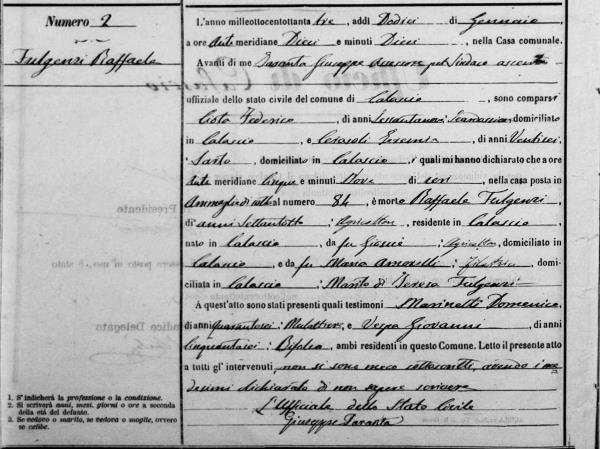 Numero 2
Fulgenzi Raffaele
L'anno milleottocentottanta tre, addì Dodici di Gennaio
a ore Anti meridiane Dieci e minuti Dieci, nella Casa comunale.
Avanti di me Taranta Giuseppe Assessore pel Sindaco assente
uffiziale dello stato civile del comune di Calascio, sono comparsi
Federico, di anni Settantauno, domiciliato
in Calascio, e Geremia, di anni Ventisei
Sarto, domiciliato in Calascio, i quali mi hanno dichiarato che a ore
Anti meridiane Cinque e minuti Nove di ieri, nella casa posta in
al numero 84, è morto Raffaele Fulgenzi,
di anni Settantotto Agricoltore, residente in Calascio,
nato in Calascio, da fu Giosuè Agricoltore, domiciliato in
Calascio, e da fu Maria Amorelli Filatrice, domi-
ciliata in Calascio: Marito di Teresa Fulgenzi
A quest'atto sono stati presenti quali testimoni Marinelli Domenico,
di anni Quarantasei: Mulattiere, e Vespa Giovanni, di anni
Cinquantasei: Bifolco, ambi residenti in questo Comune. Letto il presente atto
a tutti gl' intervenuti, non si sono meco sottoscritti, avendo i me
desimi dichiarato di non sapere scrivere
L'Uffiziale dello Stato Civile
Giuseppe Taranta
1. S' indicherà la professione o la condizione.
2. Si scriverà anni, mesi, giorni o ore a seconda
della età del defunto.
3. Se vedovo o marito, se vedova o moglie, ovvero
se celibe.